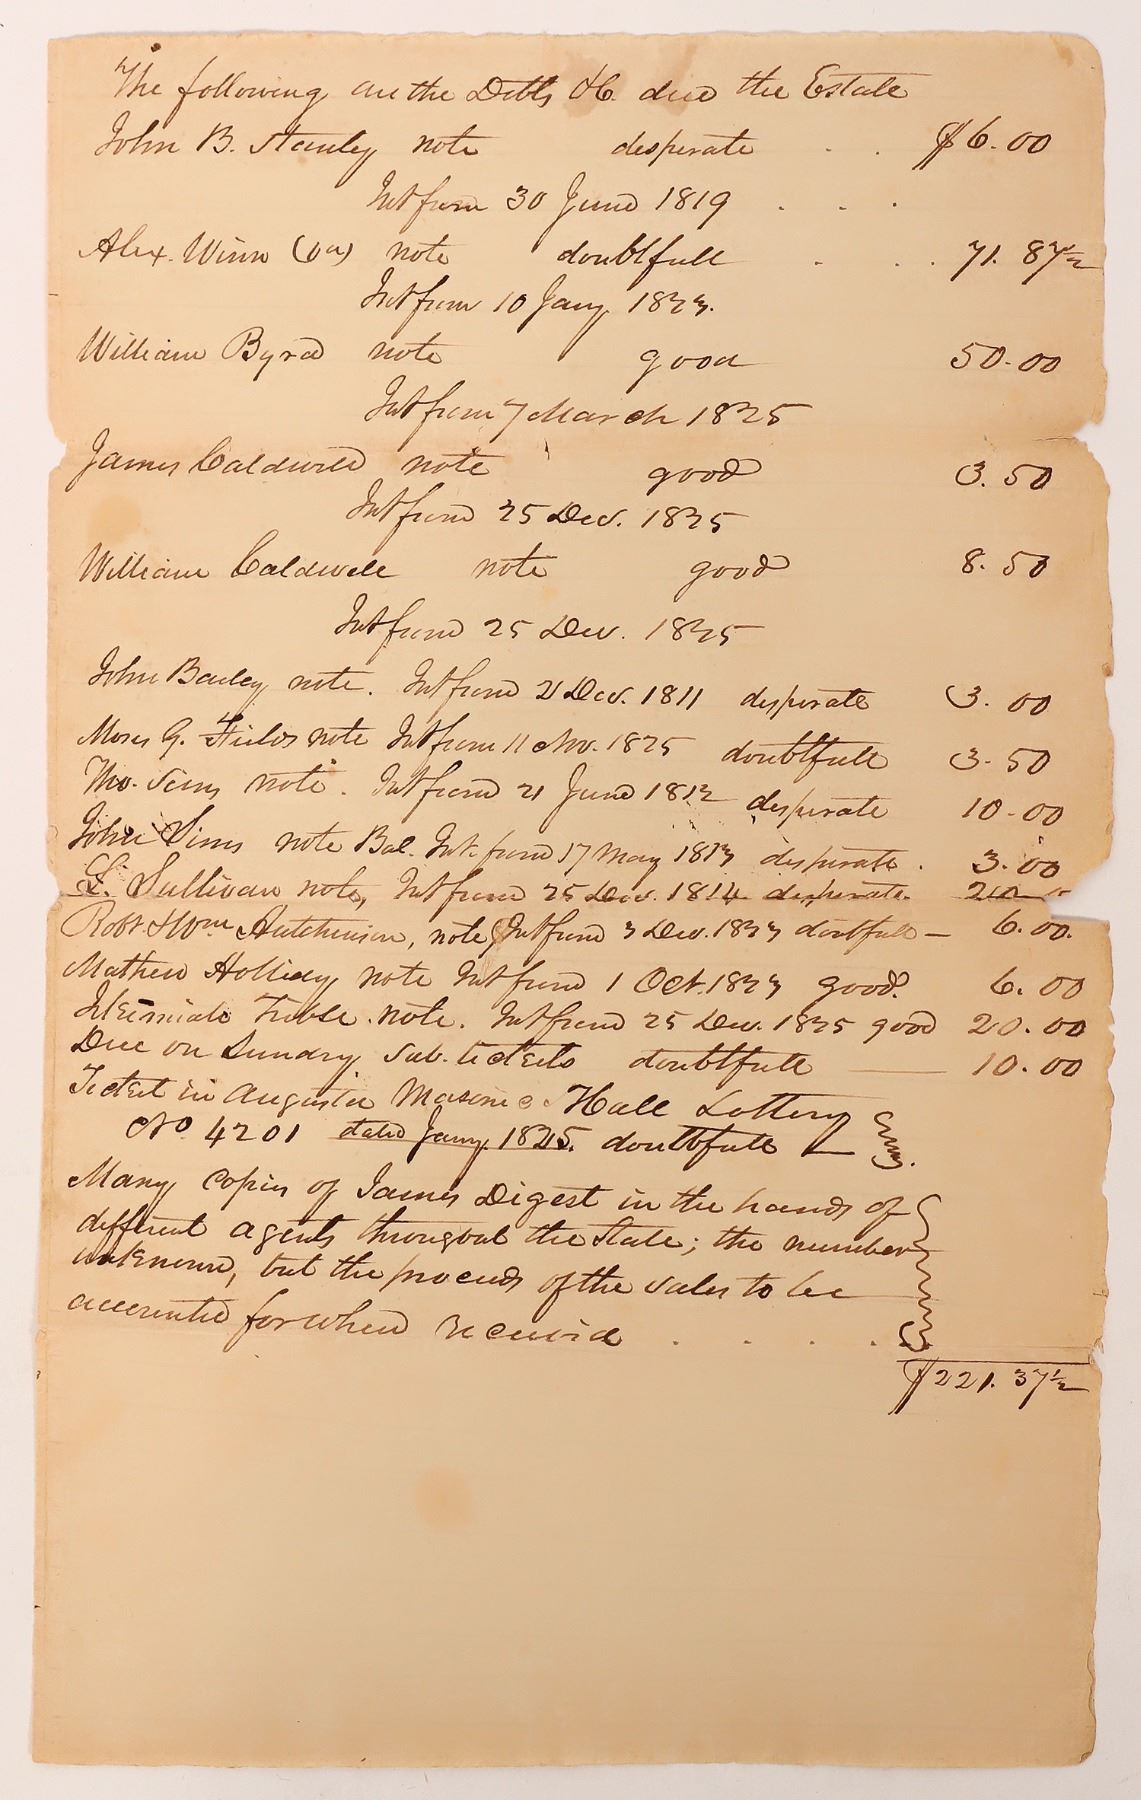 The following are the Debts &C. due the Estate
John B. Stanley note desperate . . $6.00
Int from 30 June 1819 . . .
Alex. Winn note doubtfull . . . 71.87½
Int from 10 Jany 1823.
William Byrd note good 50.00
Int from 7 March 1825
James Caldwell note good 3.50
Int from 25 Dec. 1825
William Caldwell note good 8.50
Int from 25 Dec. 1825
John Bailey note. Int from 21 Dec. 1811 desperate 3.00
Moses G. Fields note Int from 11 Nov. 1825 doubtfull 3.50
Tho. Sims note. Int from 21 June 1812 desperate 10.00
John Sims note Bal. Int. from 17 May 1813 desperate. 3.00
Sullivan note, Int from 25 Dec. 1814 desperate. 20
Robt & Wm Hutchinson, note Int from 3 Dec. 1823 doutfull — 6.00.
Mathew Holliday note Int from 1 Oct. 1823 good. 6.00
Trible note. Int from 25 Dec. 1825 good 20.00
Due on Sundry Sub. tickets doubtfull — 10.00
Ticket in Augusta Masonic Hall Lottery
No 4201 dated Jany. 1825. doubtfull
Many copies of James Digest in the hands of
different agents throughout the State; the number
unknown, but the proceeds of the sales to be
accounted for when received . . . .
$221.37½